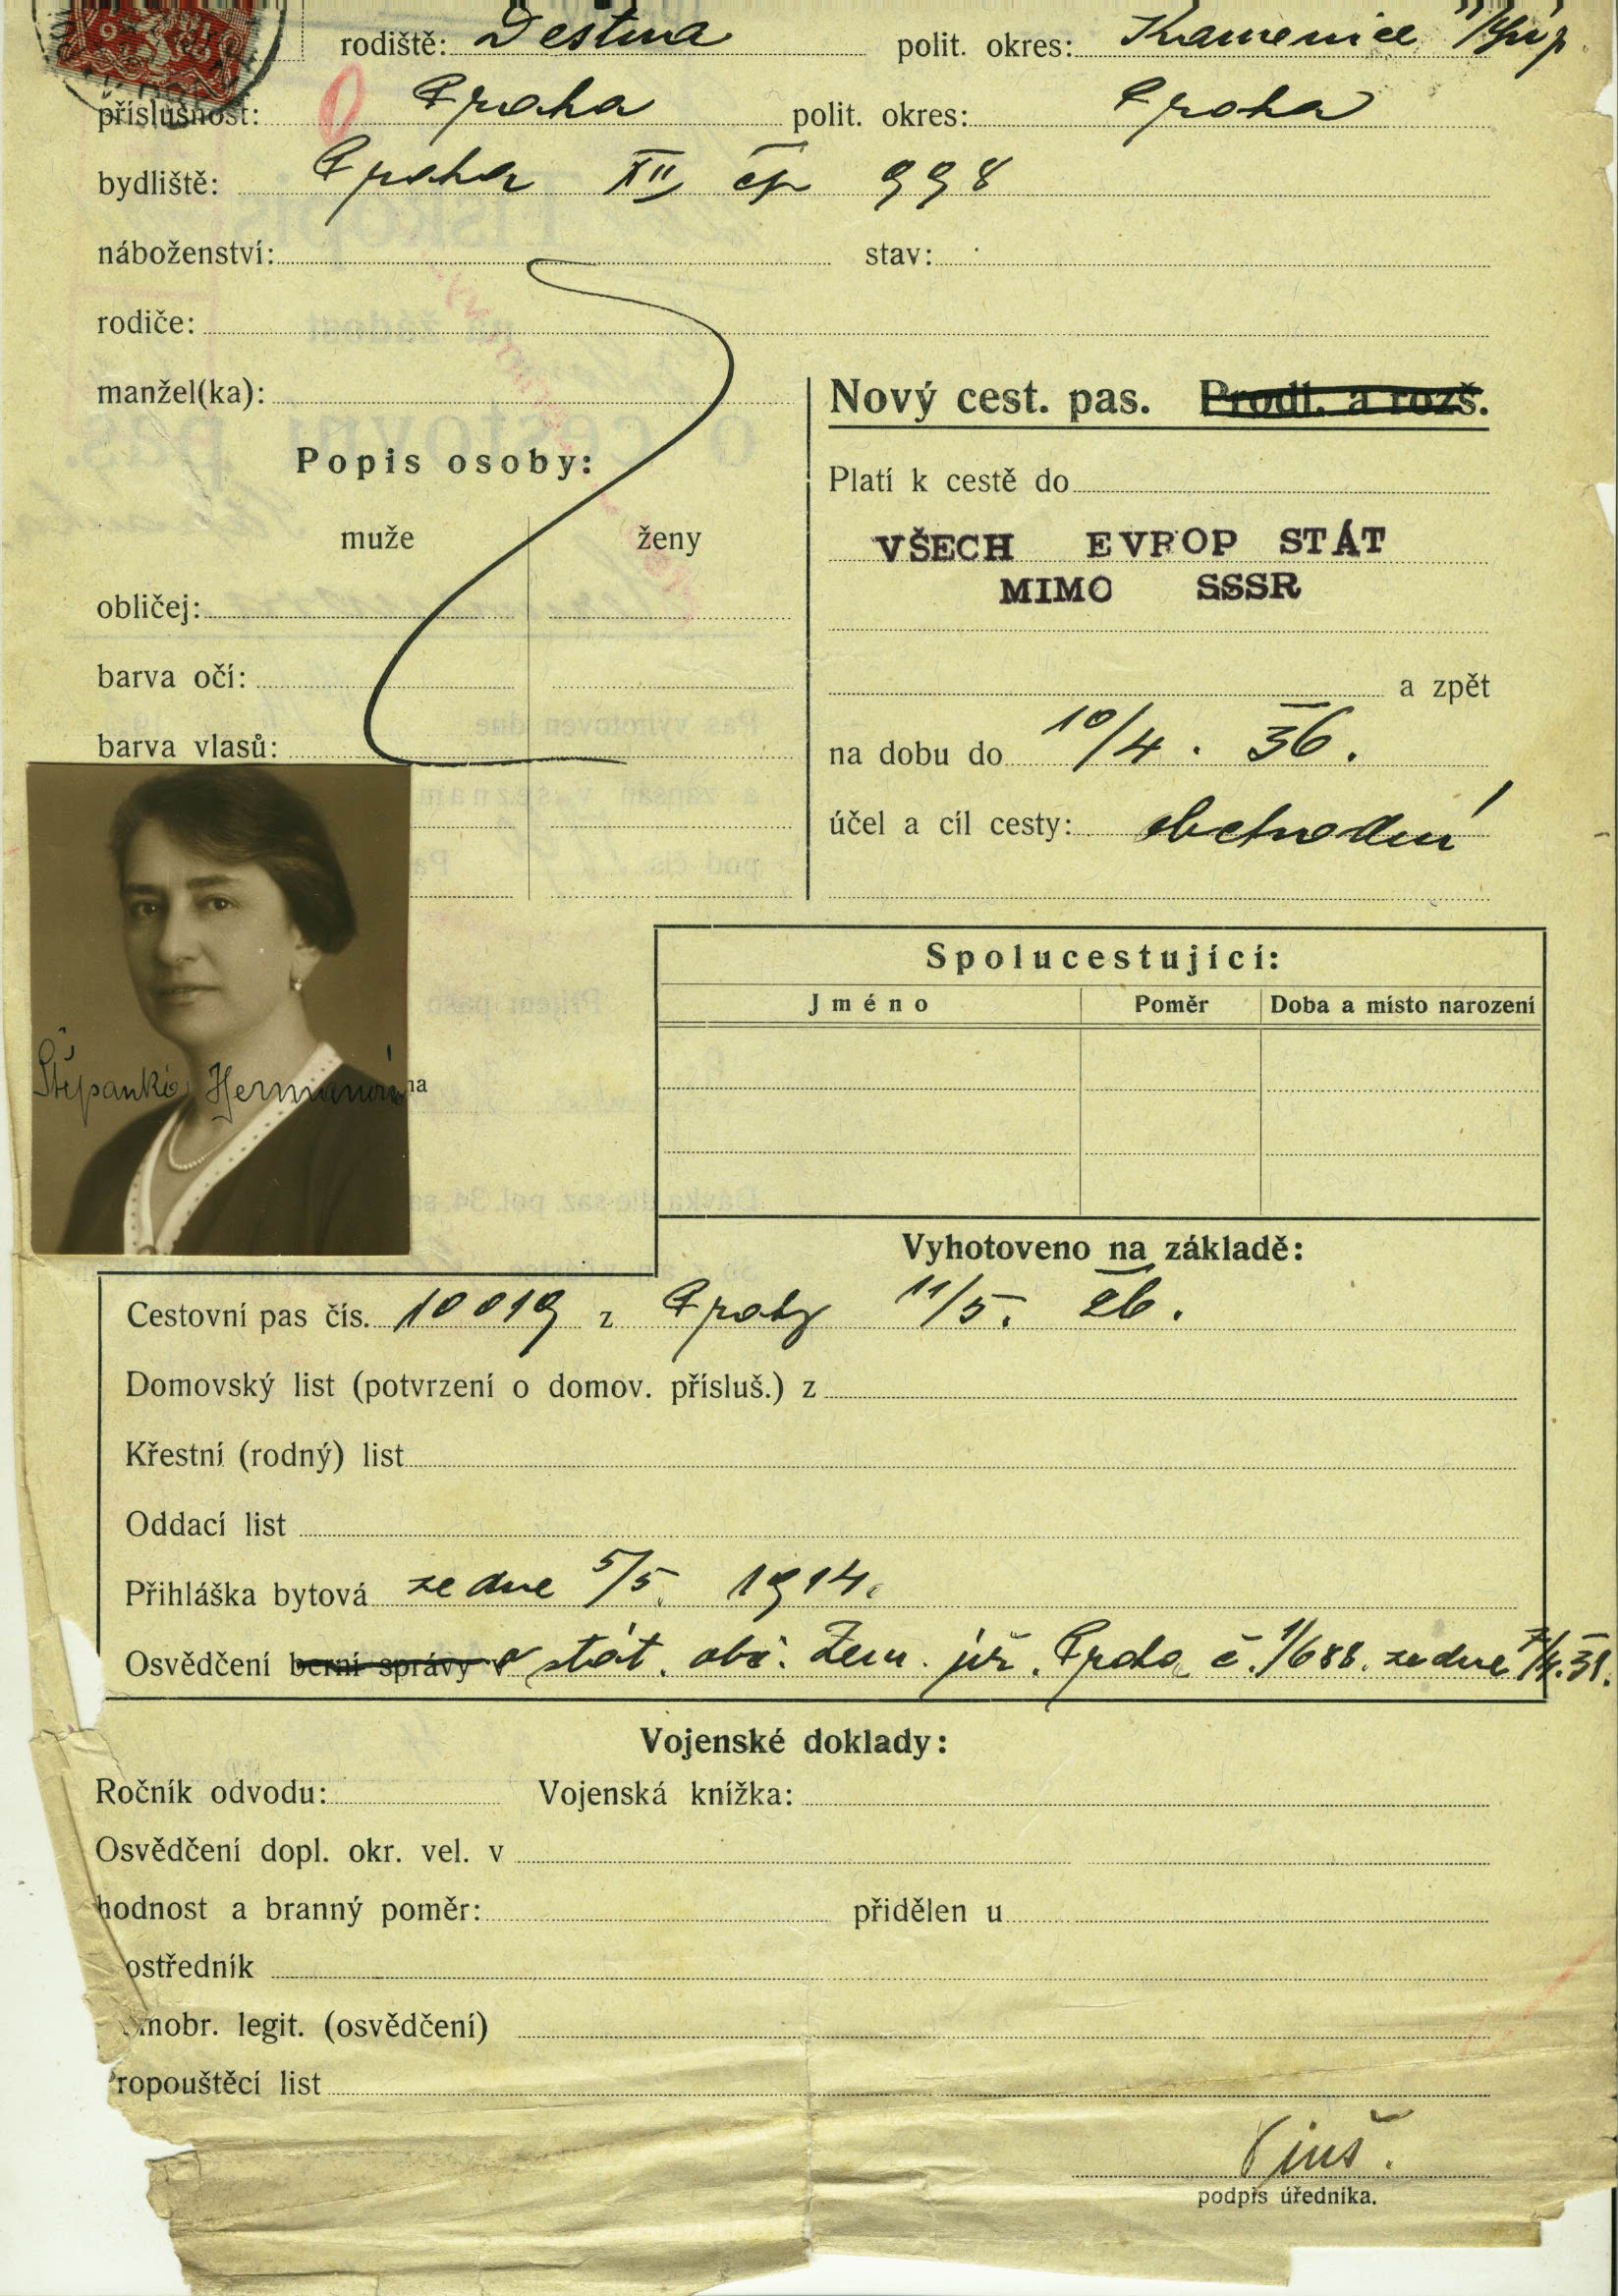 rodiště: Deštná polit. okres: Kamenice n/Lip.
příslušnost: Praha polit. okres: Praha
bydliště: Praha XII čp 998
náboženství: stav:
rodiče:
manžel(ka):
Popis osoby:
muže ženy
obličej:
barva očí:
barva vlasů:
Nový cest. pas. Prodl. a rozš.
Platí k cestě do
VŠECH EVROP STÁT
MIMO SSSR
a zpět
na dobu do 10/4. 36.
účel a cíl cesty: obchodní
Štěpánka Hermanová
Spolucestující:
Jméno Poměr Doba a místo narození
Vyhotoveno na základě:
Cestovní pas čís. 10019 z Prahy 11/5. 26.
Domovský list (potvrzení o domov. přísluš.) z
Křestní (rodný) list
Oddací list
Přihláška bytová ze dne 5/5. 1914.
Osvědčení berní správy v o stát. obč. Zem. úř. Praha č. 1/688. ze dne 7/4. 31.
Vojenské doklady:
Ročník odvodu: Vojenská knížka:
Osvědčení dopl. okr. vel. v
hodnost a branný poměr: přidělen u
ostředník
mobr. legit. (osvědčení)
ropouštěcí list
podpis úředníka.